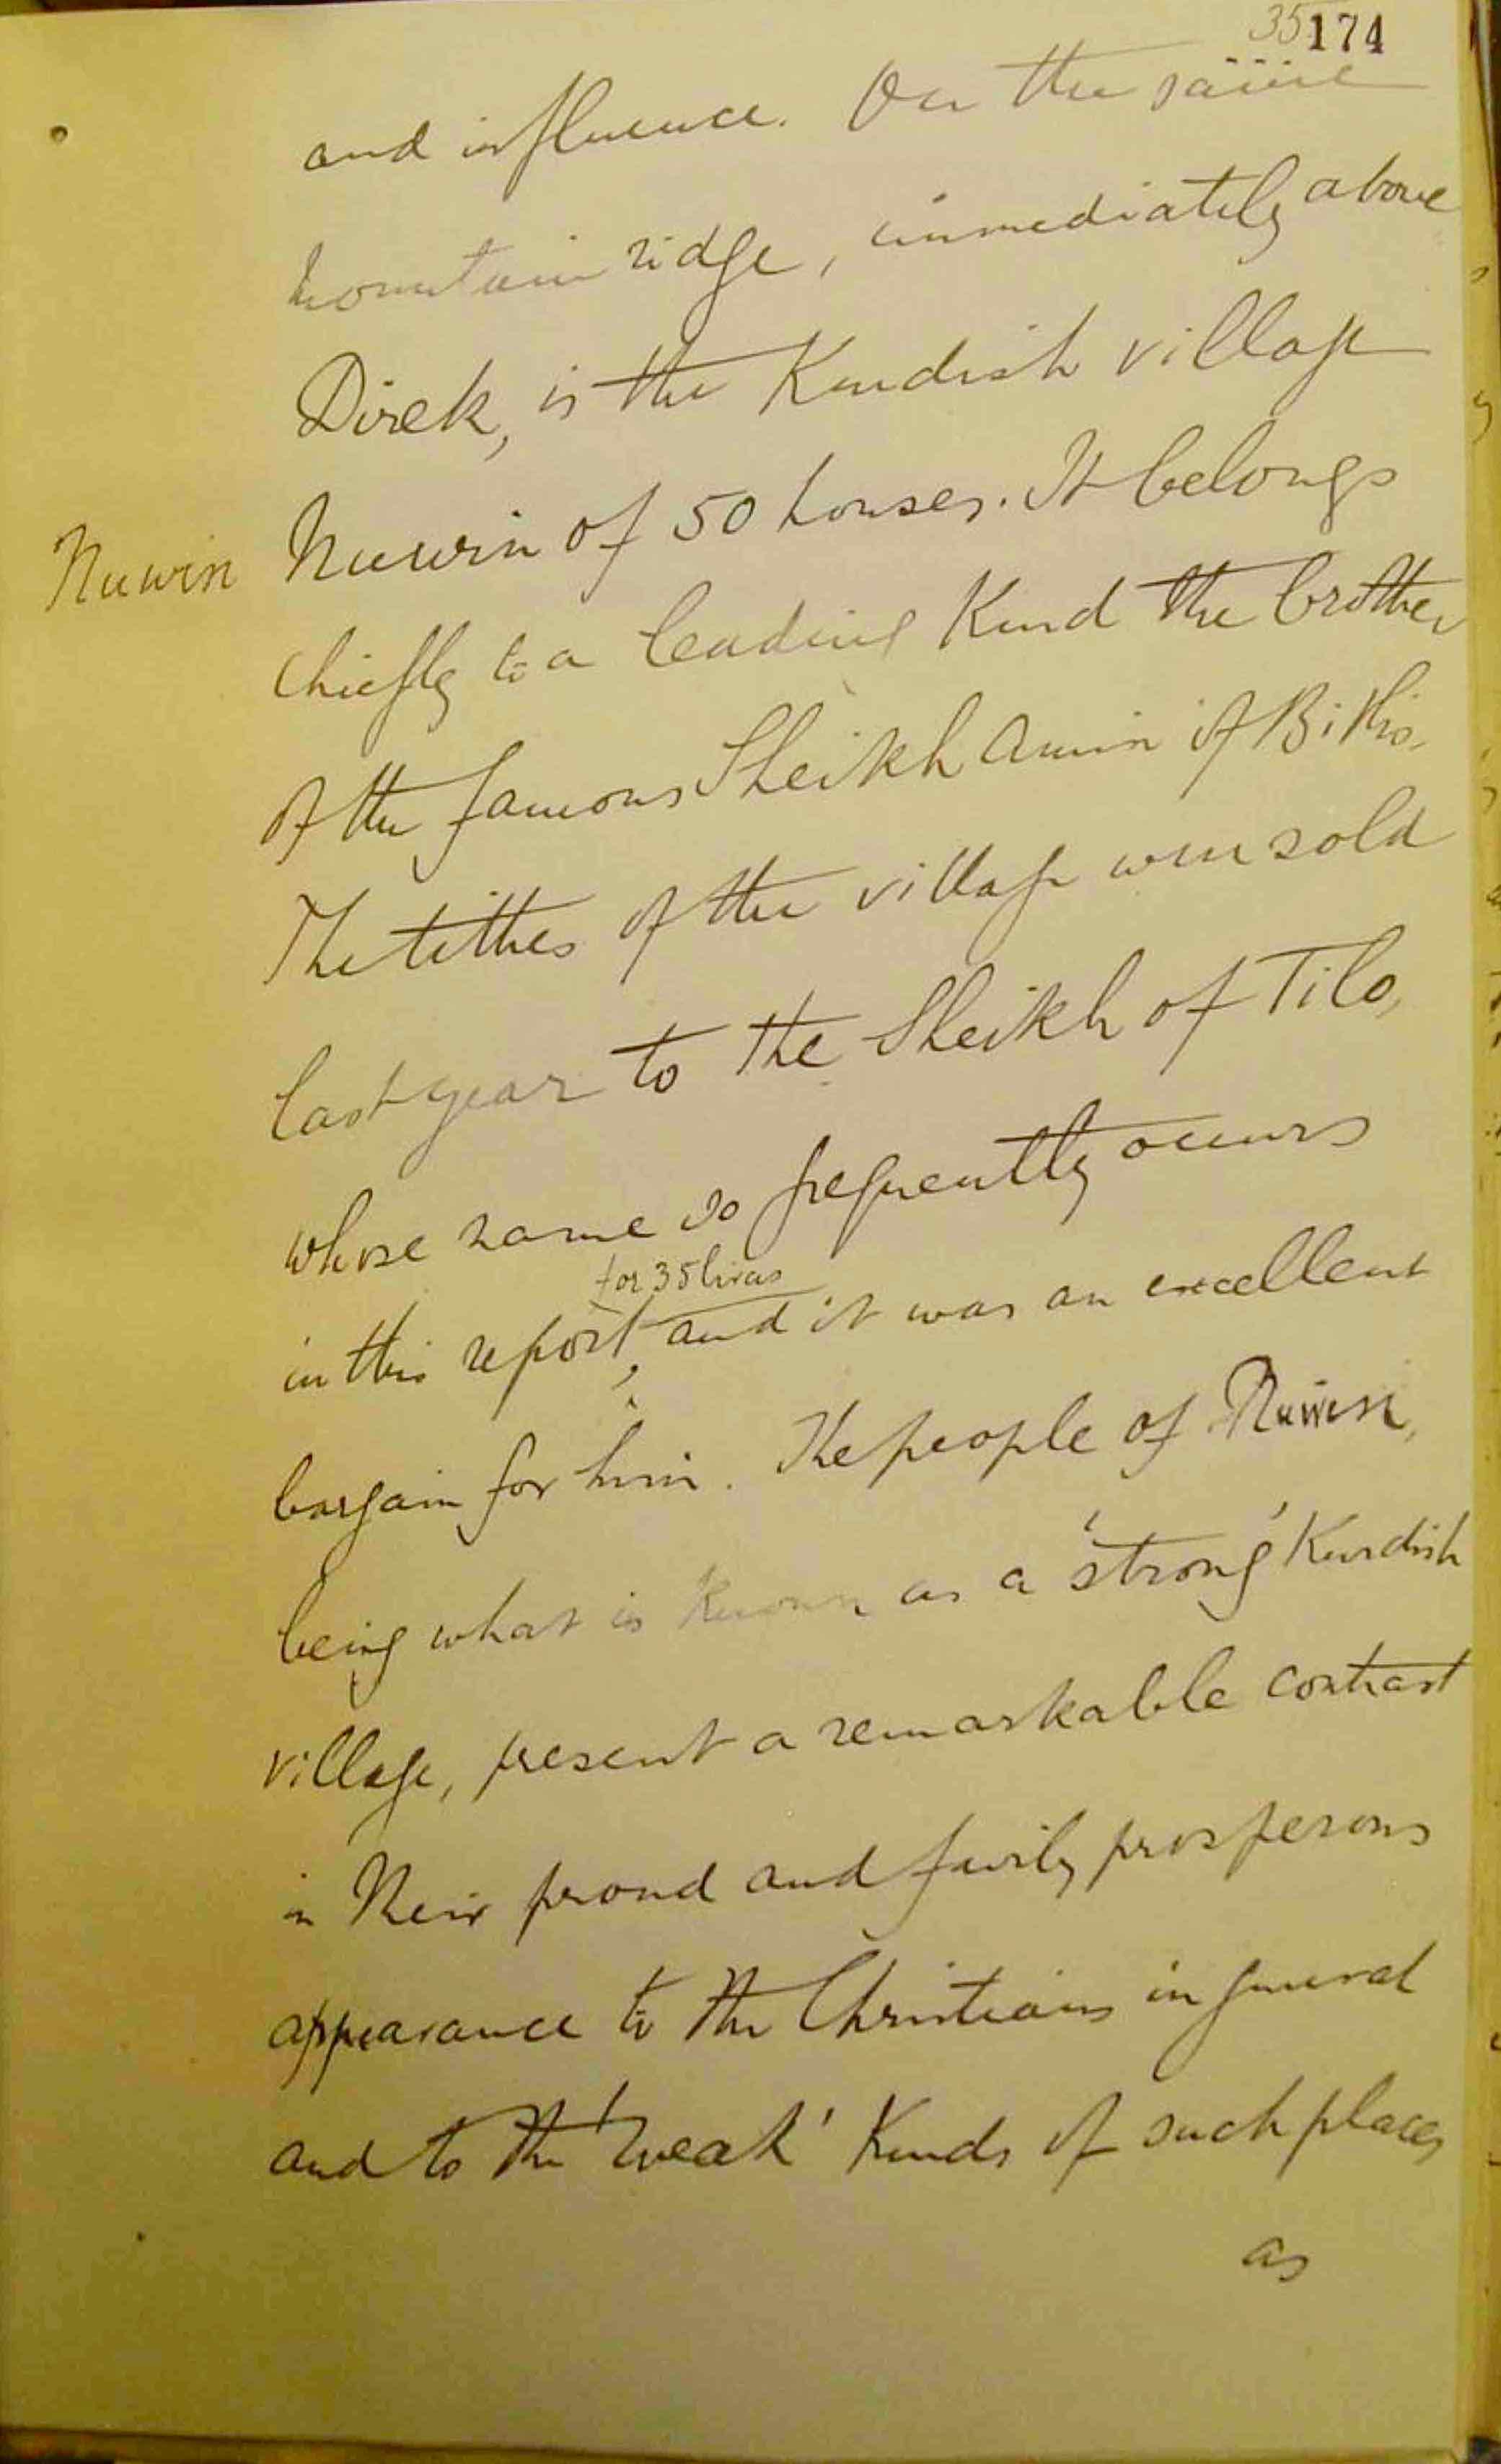 35 174
and influence. On the same
mountain ridge, immediately above
Direk, is the Kurdish village
Nuwin
Nuwin of 50 houses. It belongs
chiefly to a leading Kurd the brother
of the famous Sheikh Amin of Bitlis.
The tithes of the village were sold
last year to the Sheikh of Tilo,
whose name so frequently occurs
for 35 liras
in this report, and it was an excellent
bargain for him. The people of Nuwin,
being what is known as a 'strong' Kurdish
village, present a remarkable contrast
in their proud and fairly prosperous
appearance to the Christians in general
and to the 'weak' Kurds of such places
as